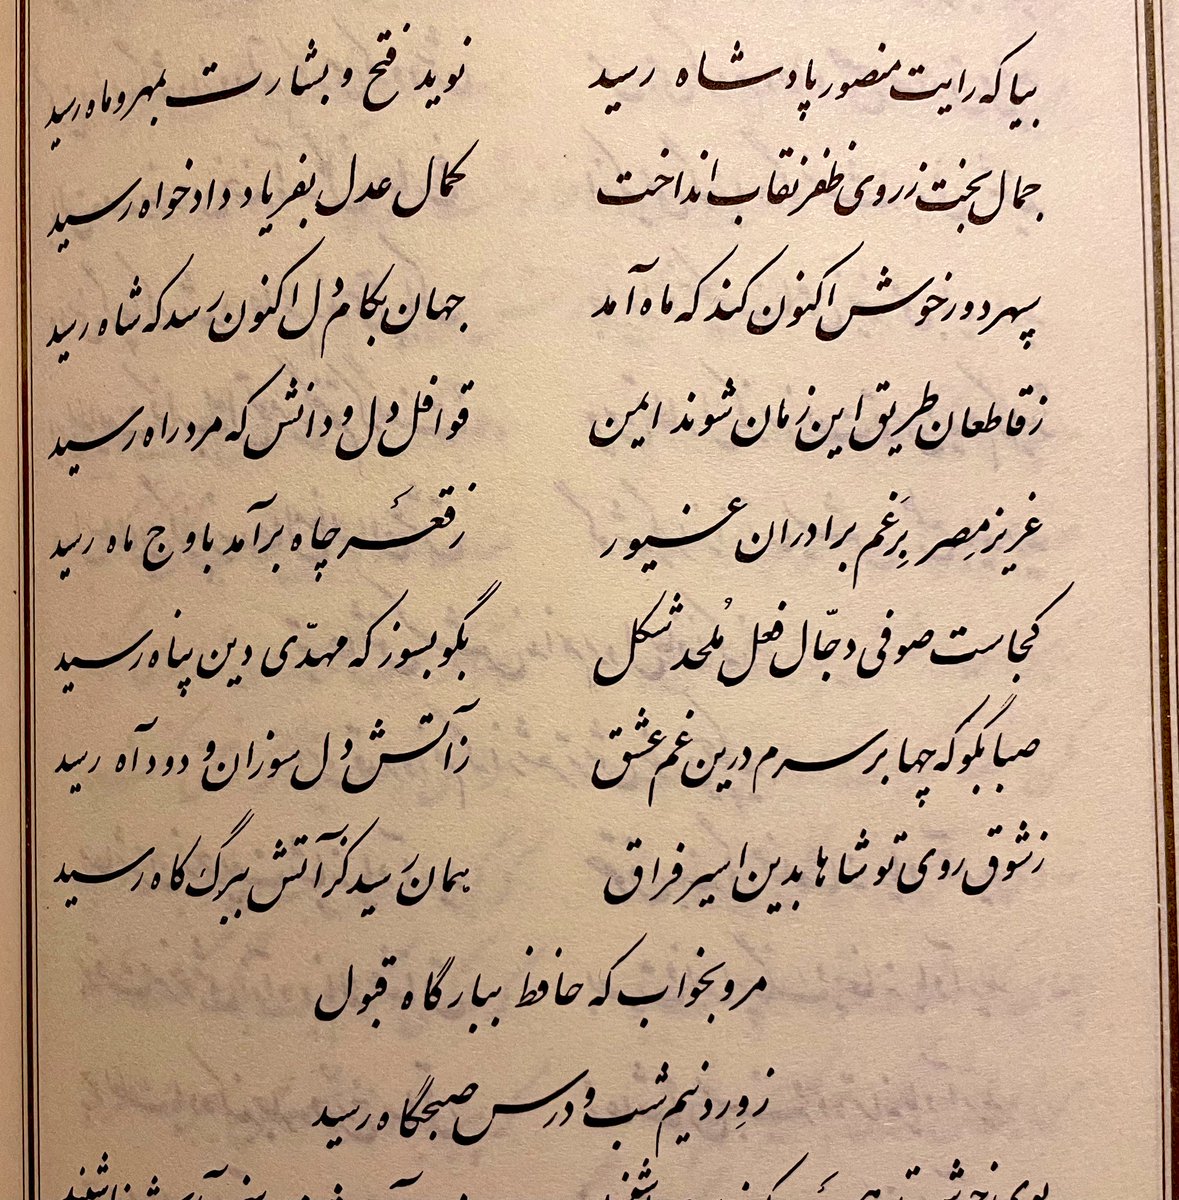 بیا که رایت منصور پادشاه رسید نوید فتح و بشارت بمهر و ماه رسید
جمال بخت ز روی ظفر نقاب انداخت کمال عدل بفریاد دادخواه رسید
سپهر دور خوش اکنون کند که ماه آمد جهان بکام دل اکنون رسد که شاه رسید
ز قاطعان طریق این زمان شوند ایمن قوافل دل و دانش که مرد راه رسید
عزیز مصر بِرَغم برادران غیور ز قعر چاه برآمد باوج ماه رسید
کجاست صوفی دجّال فعل مُلحد شکل بگو بسوز که مهدّی دین پناه رسید
صبا بگو که چها بر سرم درین غم عشق ز آتش دل سوزان و دود آه رسید
ز شوق روی تو شاها بدین اسیر فراق همان رَسید کز آتش ببرگ کاه رسید
مرو بخواب که حافظ ببارگاه قبول
ز وِرد نیم شب و درس صبحگاه رسید